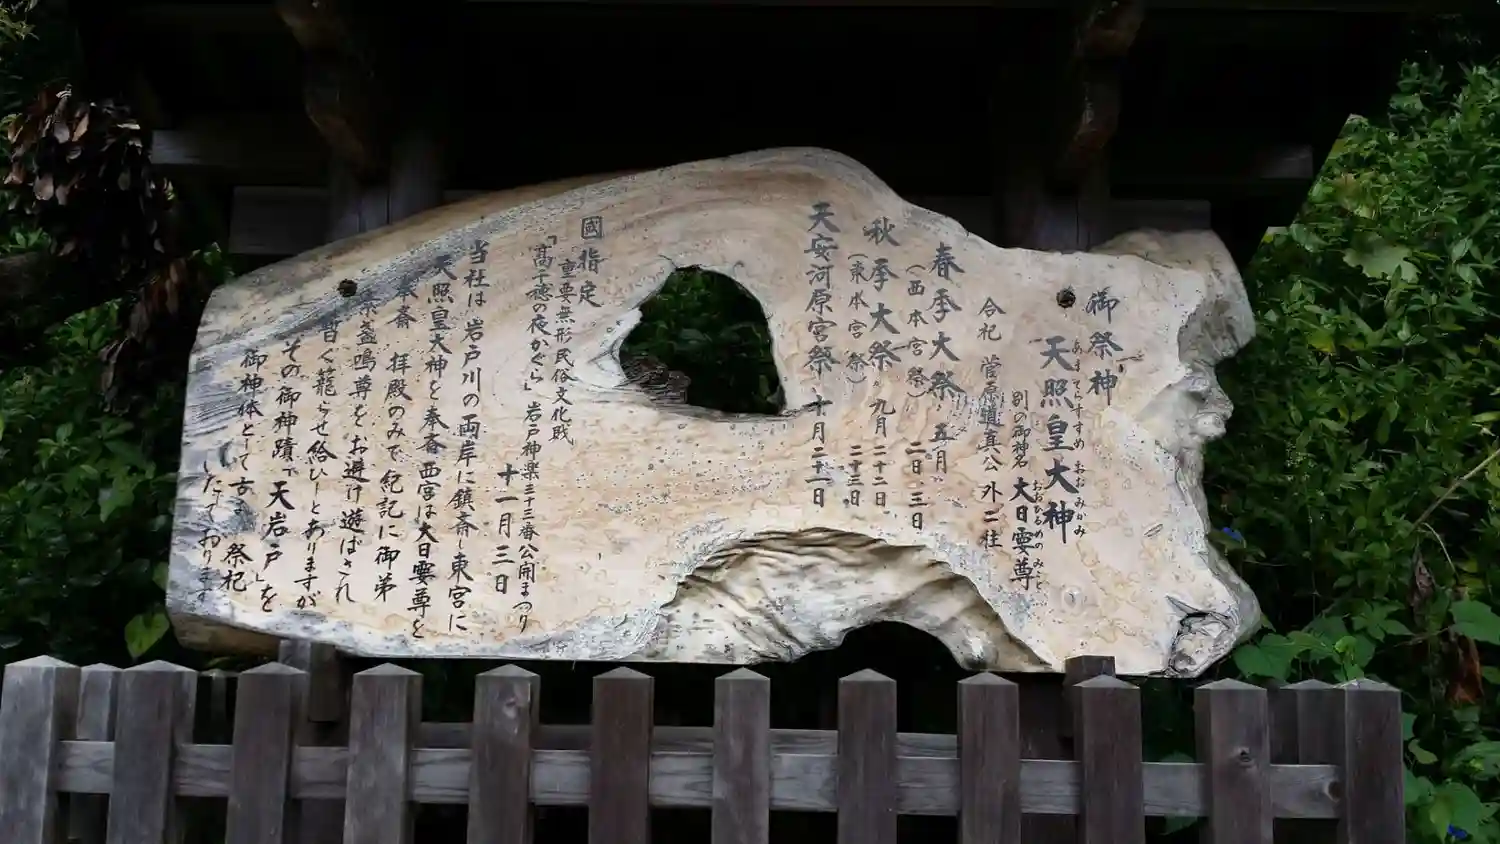 御祭神
天照皇大神
あまてらすすめ おおみかみ
別の御神名 大日孁尊
おおひるめのみこと
合祀 菅原道真公 外二柱
春季大祭 五月 二日・三日
(西本宮祭)
秋季大祭 九月 二十二日 二十三日
(東本宮祭)
天安河原宮祭 十月二十一日
國指定
重要無形民俗文化財
「高千穂の夜かぐら」岩戸神楽三十三番公開まつり
十一月三日
当社は岩戸川の両岸に鎮斎 東宮に
天照皇大神を奉斎 西宮は大日孁尊を
奉斎 拝殿のみで 紀記に御弟
素盞鳴尊をお避け遊ばされ
暫く籠らせ給ひしとありますが
その御神蹟で天岩戸」を
御神体として古 祭祀
しております